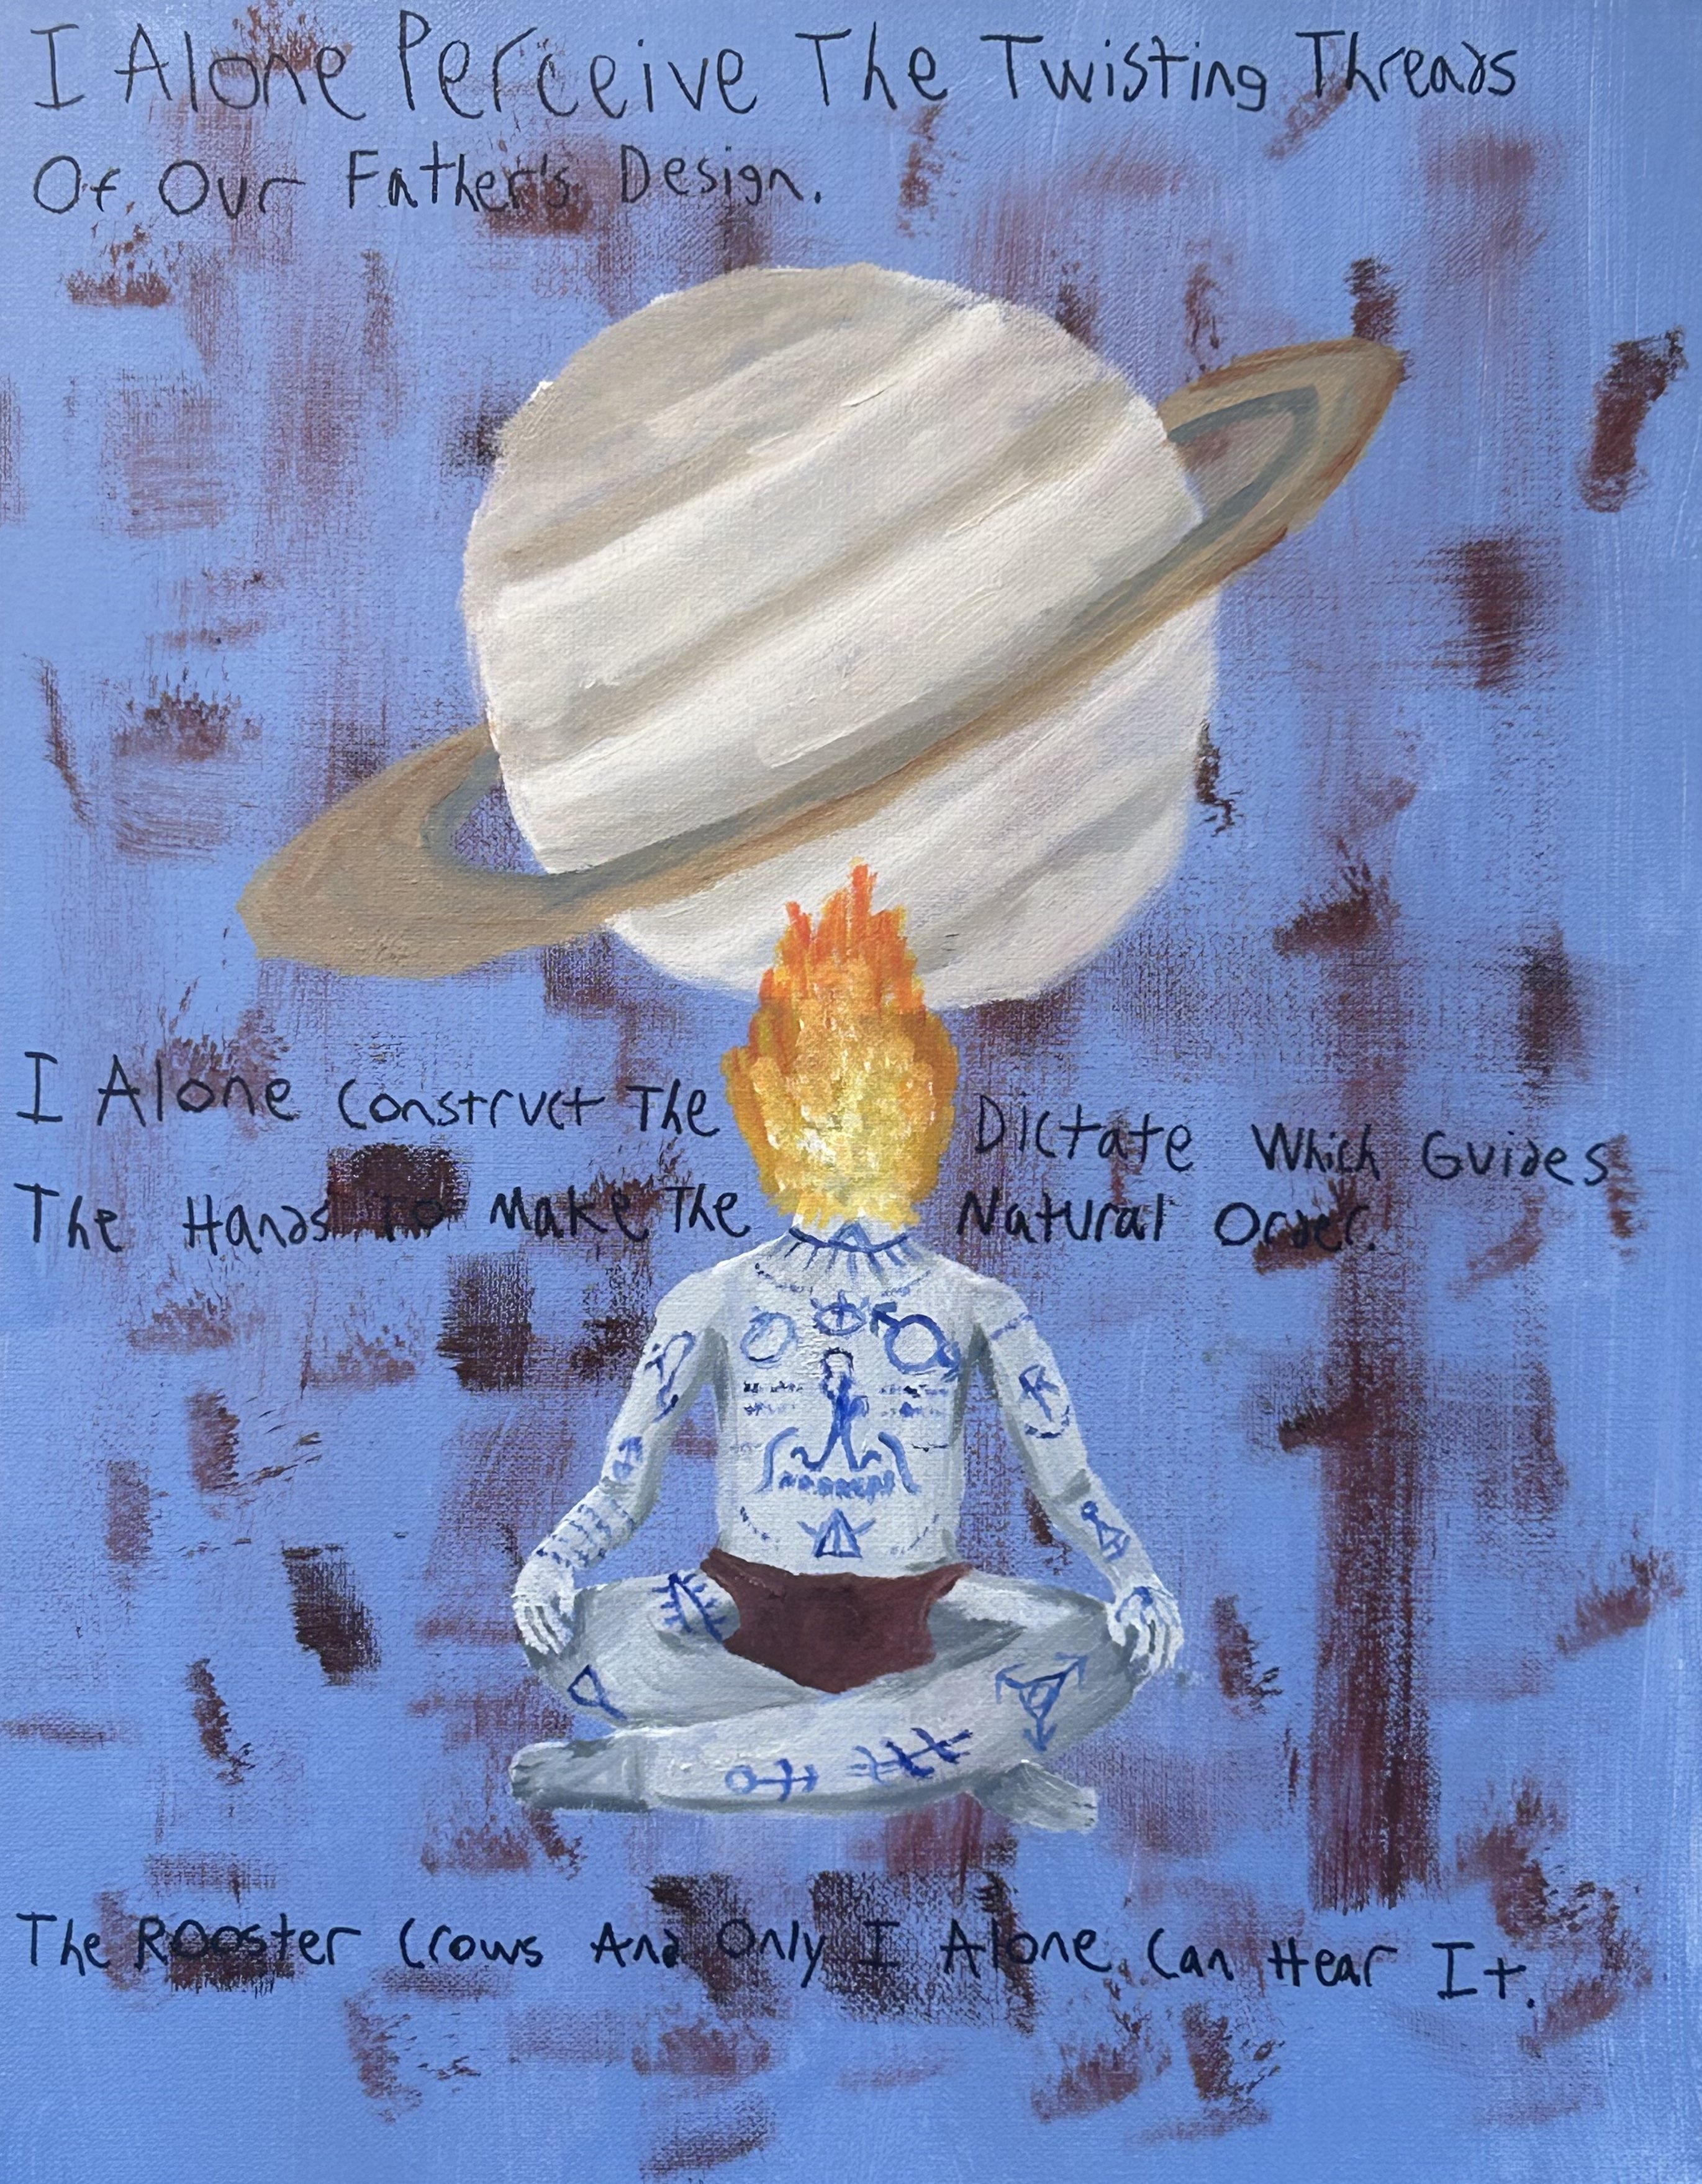 I Alone Perceive The Twisting Threads
Of Our Father's Design.
I Alone Construct The Dictate Which Guides
The Hands To Make The Natural Order.
The Rooster Crows And Only I Alone Can Hear It.